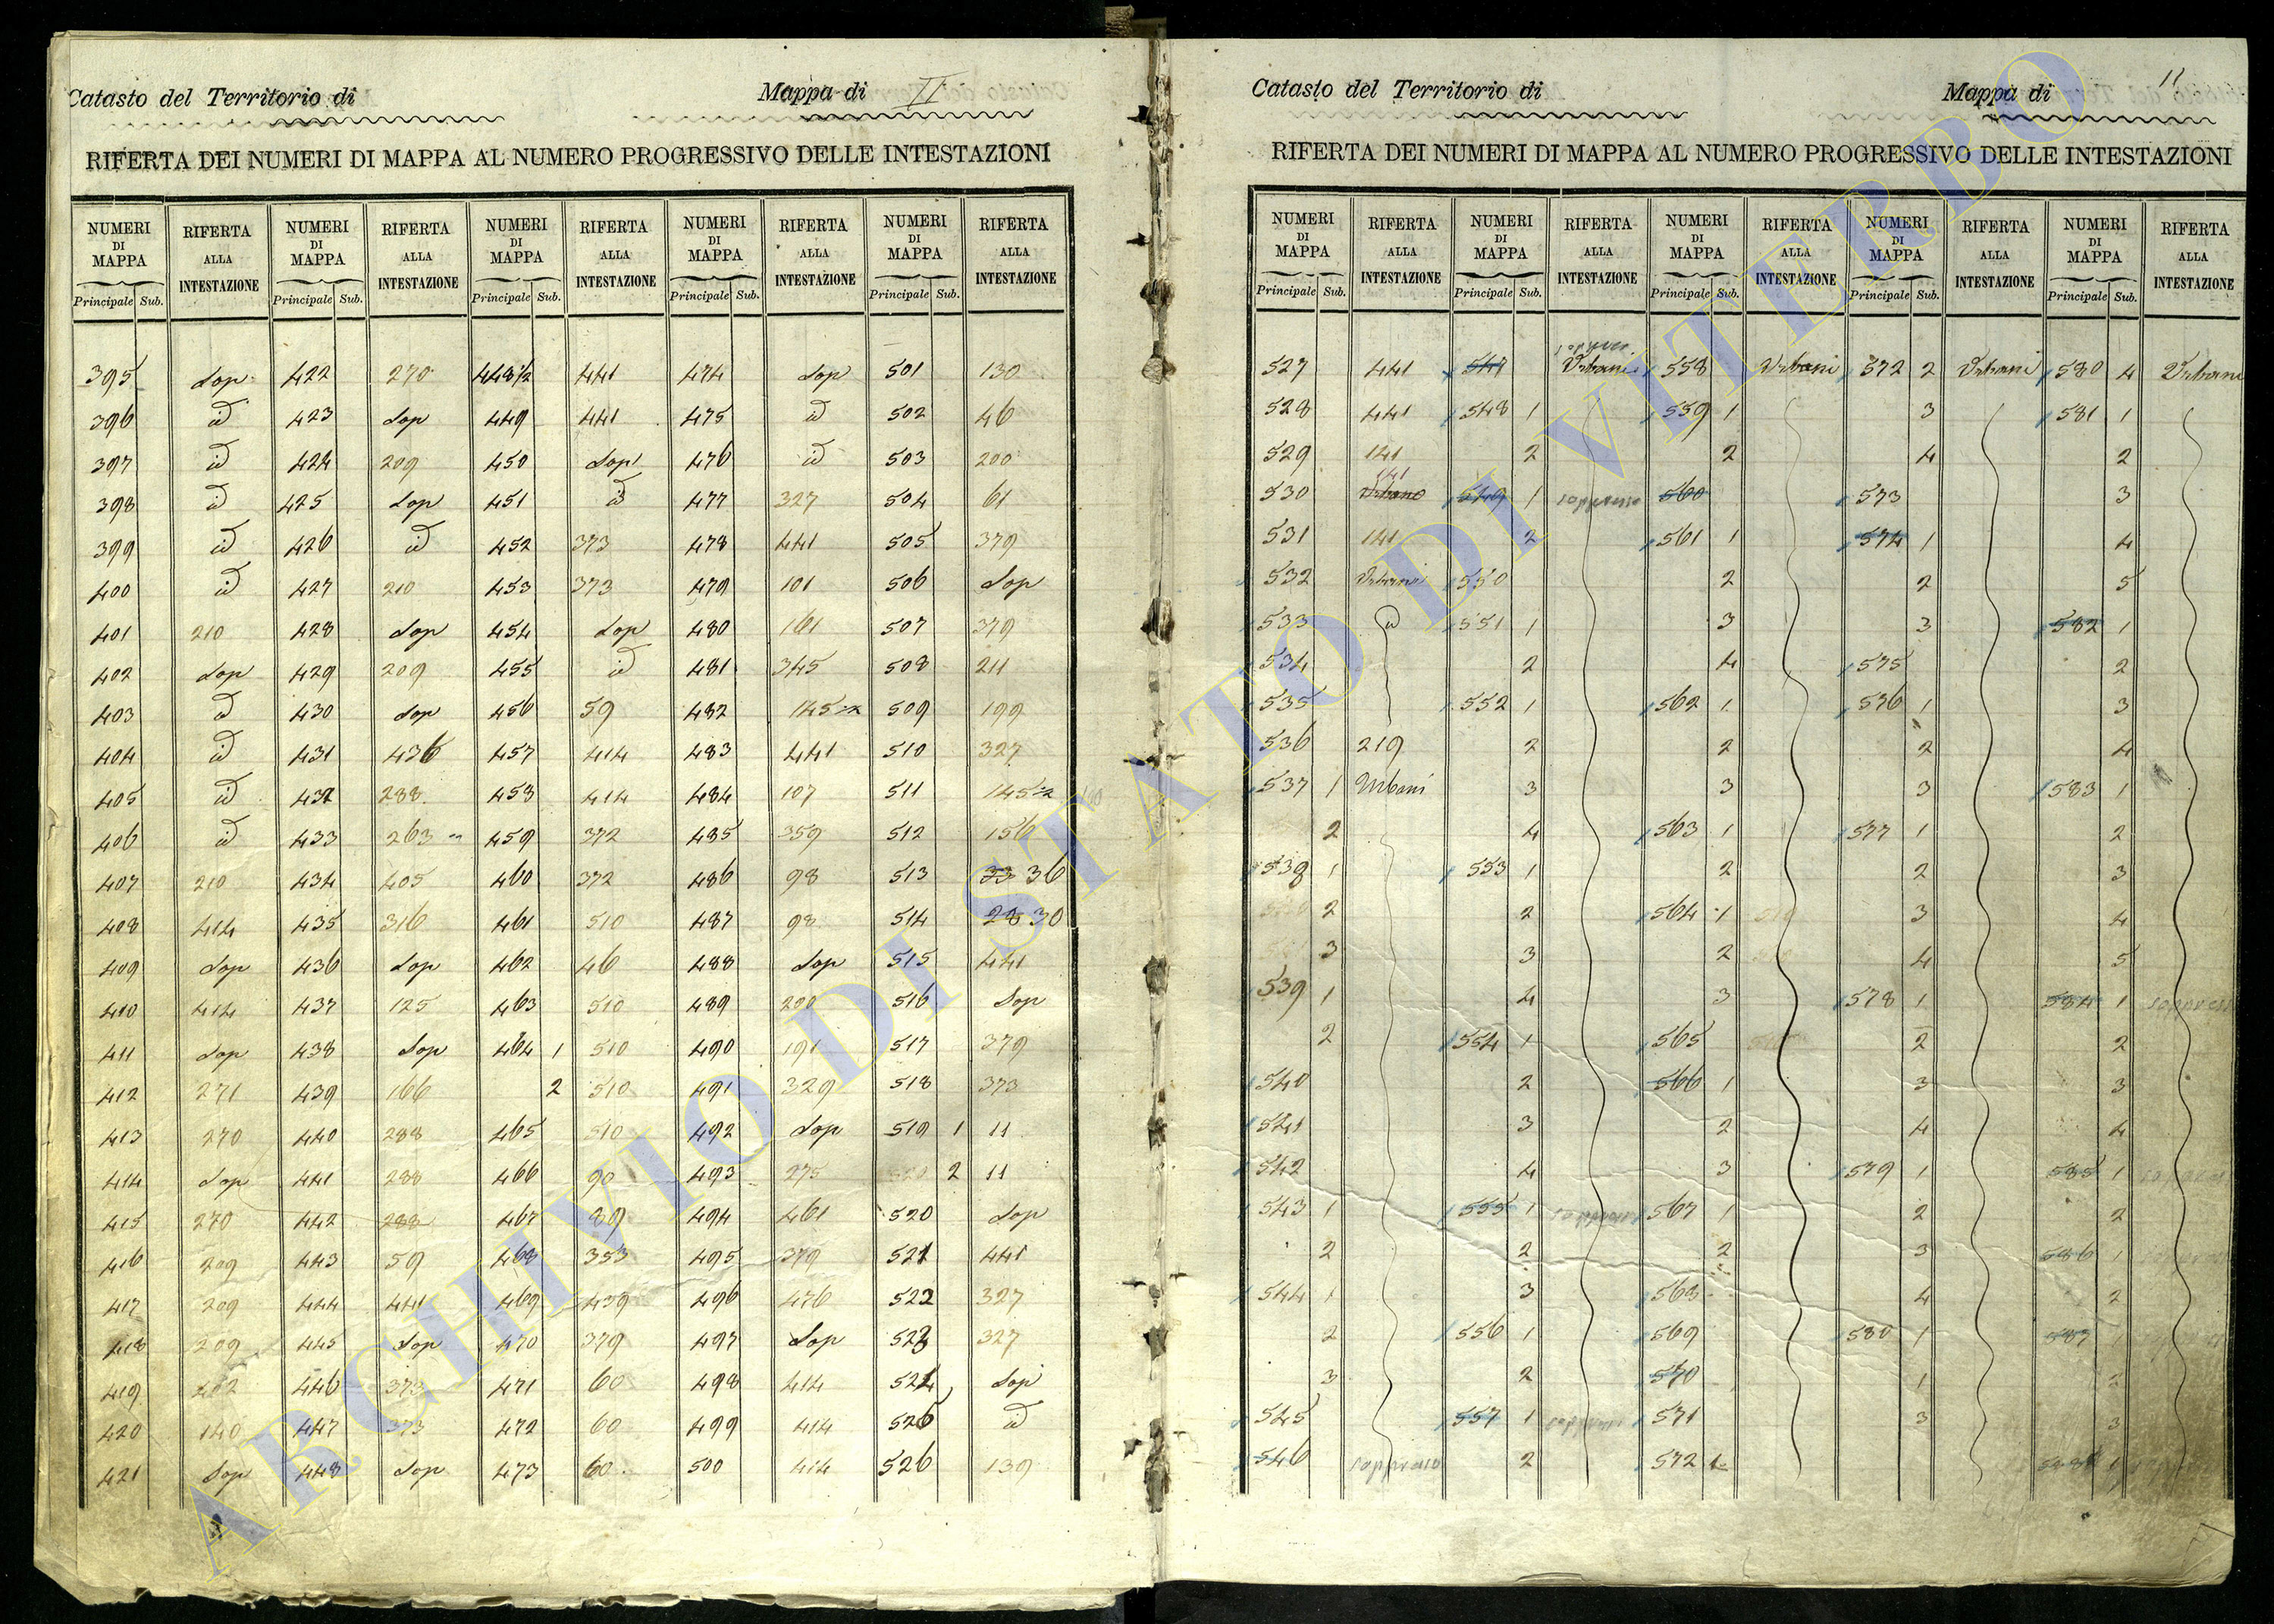 Catasto del Territorio di Mappa di II
RIFERTA DEI NUMERI DI MAPPA AL NUMERO PROGRESSIVO DELLE INTESTAZIONI
NUMERI DI MAPPA RIFERTA ALLA INTESTAZIONE NUMERI DI MAPPA RIFERTA ALLA INTESTAZIONE NUMERI DI MAPPA RIFERTA ALLA INTESTAZIONE NUMERI DI MAPPA RIFERTA ALLA INTESTAZIONE NUMERI DI MAPPA RIFERTA ALLA INTESTAZIONE
Principale Sub. Principale Sub. Principale Sub. Principale Sub. Principale Sub.
395 Sop 422 270 448½ 441 474 Sop 501 130
396 id 423 Sop 449 441 475 id 502 46
397 id 424 209 450 Sop 476 id 503 200
398 id 425 Sop 451 id 477 327 504 61
399 id 426 id 452 373 478 441 505 379
400 id 427 210 453 373 479 101 506 Sop
401 210 428 Sop 454 Sop 480 161 507 379
402 Sop 429 209 455 id 481 345 508 211
403 id 430 Sop 456 59 482 509 199
404 id 431 436 457 414 483 441 510 327
405 id 432 288 458 414 484 107 511
406 id 433 263 459 372 485 359 512 156
407 210 434 405 460 372 486 98 513 33 36
408 414 435 316 461 510 487 98 514 28 30
409 Sop 436 Sop 462 46 488 Sop 515 441
410 414 437 125 463 510 489 200 516 Sop
411 Sop 438 Sop 464 1 510 490 191 517 379
412 271 439 166 2 510 491 329 518 373
413 270 440 288 465 510 492 Sop 519 1 11
414 Sop 441 288 466 90 493 275 2 11
415 270 442 288 467 89 494 461 520 Sop
416 209 443 59 468 353 495 379 521 441
417 209 444 441 469 439 496 476 522 327
418 209 445 Sop 470 379 497 Sop 523 327
419 446 373 471 60 498 414 524 Sop
420 140 447 373 472 60 499 414 525 id
421 Sop 448 Sop 473 60 500 414 526 139
Catasto del Territorio di Mappa di 11
RIFERTA DEI NUMERI DI MAPPA AL NUMERO PROGRESSIVO DELLE INTESTAZIONI
NUMERI DI MAPPA RIFERTA ALLA INTESTAZIONE NUMERI DI MAPPA RIFERTA ALLA INTESTAZIONE NUMERI DI MAPPA RIFERTA ALLA INTESTAZIONE NUMERI DI MAPPA RIFERTA ALLA INTESTAZIONE NUMERI DI MAPPA RIFERTA ALLA INTESTAZIONE
Principale Sub. Principale Sub. Principale Sub. Principale Sub. Principale Sub.
527 441 547 Urbani 558 Urbani 572 2 Urbani 580 4 Urbani
528 441 548 1 559 1 3 581 1
529 141 2 2 4 2
141
530 Urbano 549 1 soppresso 560 573 3
531 141 2 561 1 574 1 4
532 Urbani 550 2 2 5
533 id 551 1 3 3 582 1
534 2 4 575 2
535 552 1 562 1 576 1 3
536 219 2 2 2 4
537 1 Urbani 3 3 3 583 1
2 4 563 1 577 1 2
538 1 553 1 2 2 3
2 2 564 1 3 4
3 3 2 4 5
539 1 4 3 578 1 584 1
2 554 1 565 2 2
540 2 566 1 3 3
541 3 2 4 4
542 4 3 579 1 585 1
543 1 555 1 567 1 2 2
2 2 2 3 586 1
544 1 3 568 4 2
2 556 1 569 580 1 587 1
3 2 570 1 2
545 557 1 571 3 3
546 soppresso 2 572 1
ARCHIVIO DI STATO DI VITERBO